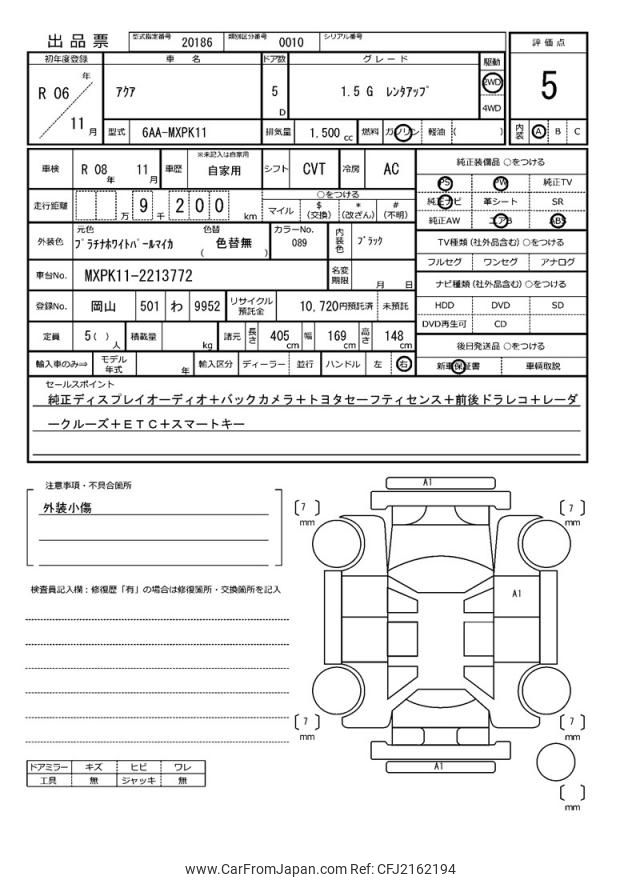 出品票 型式指定番号 20186 類別区分番号 0010 シリアル番号
評価点
5
内装 A B C
初年度登録 車名 ドア数 グレード 駆動
R 06 年 11 月
アクア 5 D 1.5 G レンタアップ 2WD
4WD
型式 6AA-MXPK11 排気量 1.500 cc 燃料 ガソリン 軽油 ( )
車検 R 08 年 11 月 車歴 ※未記入は自家用 自家用 シフト CVT 冷房 AC
走行距離 万 9 千 2 0 0 km
○をつける
マイル $(交換) *(改ざん) #(不明)
外装色 元色 プラチナホワイトパールマイカ 色替 ( 色替無 ) カラーNo. 089 内装色 ブラック
車台No. MXPK11-2213772 名変期限 月 日
登録No. 岡山 501 わ 9952 リサイクル預託金 10,720円預託済 未預託
定員 5 ( ) 人 積載量 kg 諸元 長さ 405 cm 幅 169 cm 高さ 148 cm
輸入車のみ⇒ モデル年式 年 輸入区分 ディーラー 並行 ハンドル 左 右
純正装備品 ○をつける
PS PW 純正TV
純正ナビ 革シート SR
純正AW エアB ABS
TV種類 (社外品含む) ○をつける
フルセグ ワンセグ アナログ
ナビ種類 (社外品含む) ○をつける
HDD DVD SD
DVD再生可 CD
後日発送品 ○をつける
新車保証書 車輌取説
セールスポイント
純正ディスプレイオーディオ+バックカメラ+トヨタセーフティセンス+前後ドラレコ+レーダ
ークルーズ+ETC+スマートキー
注意事項・不具合箇所
外装小傷
検査員記入欄：修復歴「有」の場合は修復箇所・交換箇所を記入
ドアミラー キズ ヒビ ワレ
工具 無 ジャッキ 無
A1
[ 7 ] mm
[ 7 ] mm
A1
[ 7 ] mm
[ 7 ] mm
A1
[ ] mm
www.CarFromJapan.com Ref: CFJ2162194